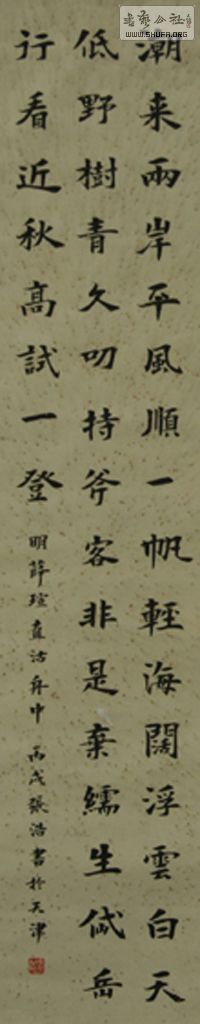 潮来兩岸平風順一帆輕海闊浮雲白天
低野樹青久叨持斧客非是棄繻生岱岳
行看近秋高試一登
明薛瑄直沽舟中 丙戌張浩書於天津
書藝公社
WWW.SHUFA.ORG